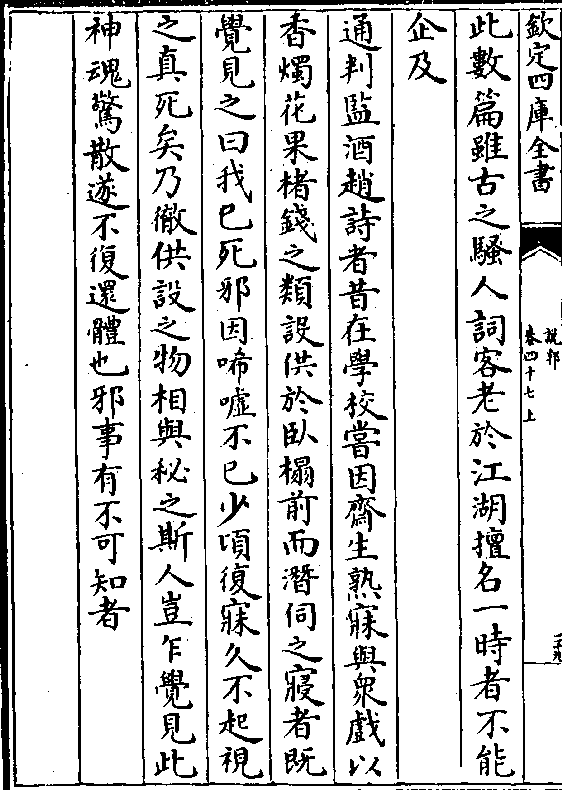 欽定四庫全書
說郛
卷四十七上
此數篇雖古之騷人詞客老於江湖擅名一時者不能
企及
通判監酒趙詩者昔在學校嘗因齋生熟寐與衆戲以
香燭花果楮錢之類設供於臥榻前而潛伺之寢者既
覺見之曰我已死邪因唏噓不已少頃復寐久不起視
之真死矣乃徹供設之物相與秘之斯人豈乍覺見此
神魂驚散遂不復還體也邪事有不可知者